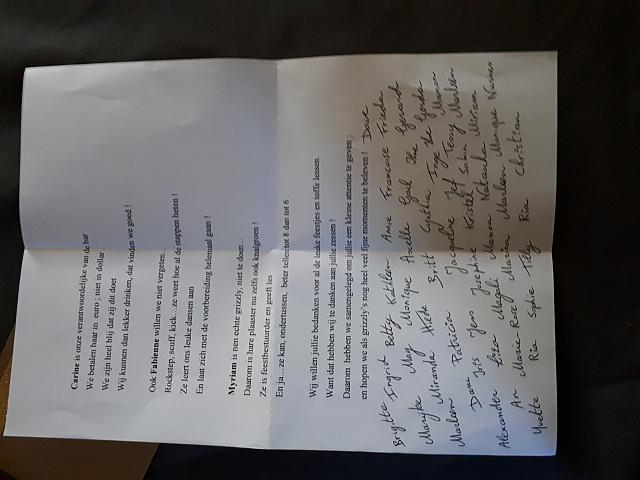 Carine is onze verantwoordelijke van de bar
We betalen haar in euro ; niet in dollar .
We zijn heel blij dat zij dit doet
Wij kunnen dan lekker drinken, dat vinden we goed !
Ook Fabienne willen we niet vergeten…
Rockstep, scuff, kick….ze weet hoe al de stappen heten !
Ze leert ons leuke dansen aan
En laat zich met de voorbereiding helemaal gaan !
Myriam is nen echte grizzly, niet te doen…
Daarom is hare plaaster nu zelfs ook knalgroen !
Ze is feestbestuurder en geeft les
En ja…ze kan, ondertussen, beter tellen tot 8 dan tot 6 .
Wij willen jullie bedanken voor al de leuke feestjes en toffe lessen.
Want dat hebben wij te danken aan jullie zessen !
Daarom hebben we samengelegd om jullie een kleine attentie te geven ;
en hopen we als grizzly's nog heel veel fijne momenten te beleven ! Dave
Brigitte Ingrid Betty Kathleen Annie Francoise Frieda
Marijke May Monique Axelle Gaël Ilse Gerard
May Miranda Hilde Britt Cynthia Inge Ilse Gerda
Marleen Patricia Jacqueline Jef Tessy Marleen
Dana Iris Jens Josephine Kristel Sabin Miriam
Alexander Lizea Magali Manon Natascha
An Marie-Rose Marina Marleen Monique Nancy
Yvette Ria Sophie Tilly Ria Christian